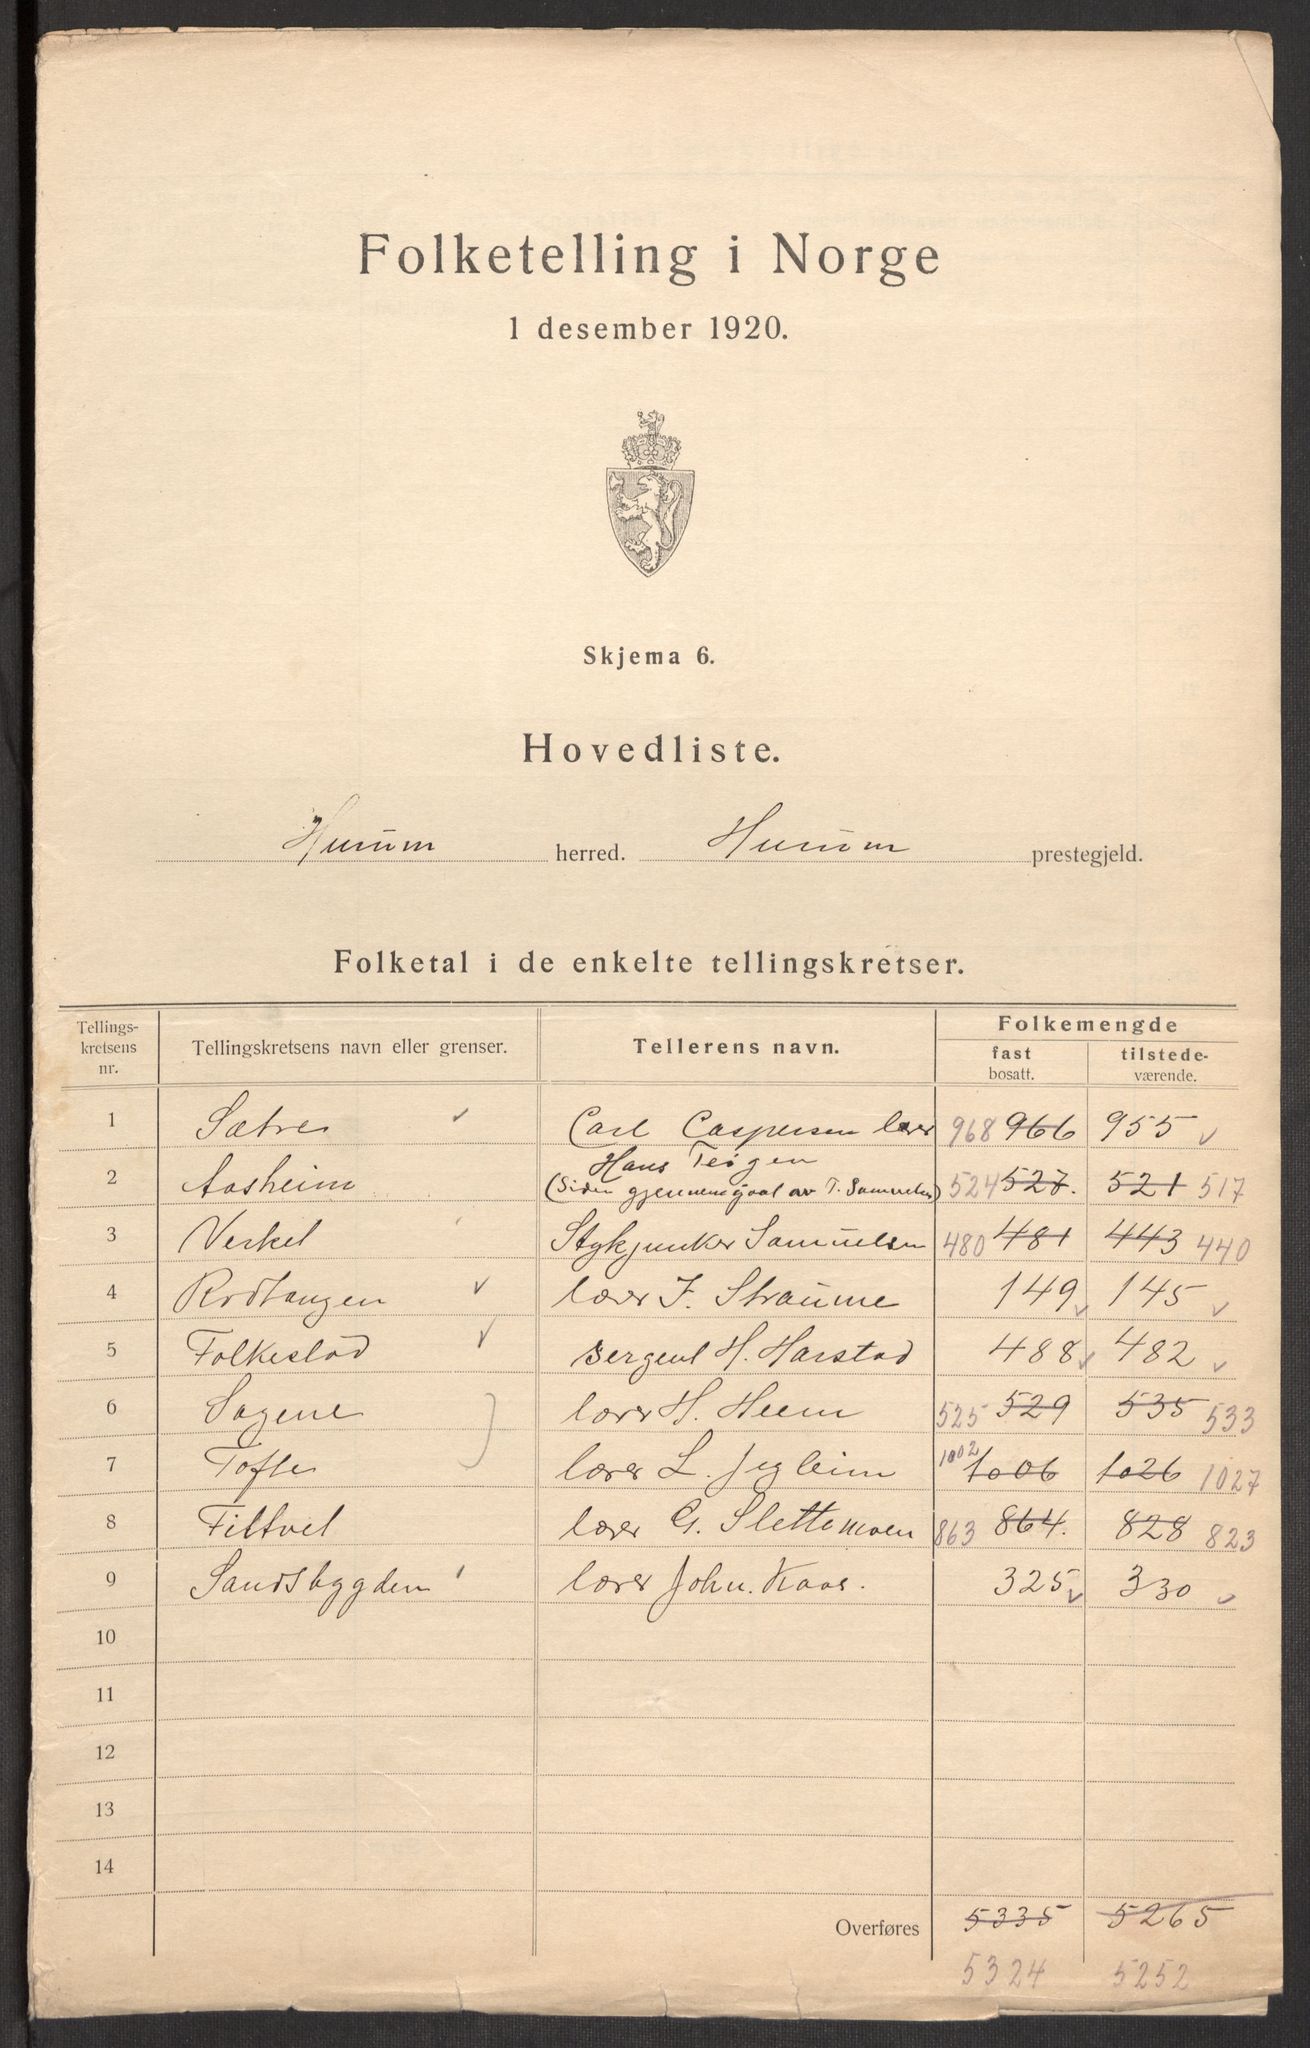 Folketelling i Norge
1 desember 1920.
Skjema 6.
Hovedliste.
Hurum herred. Hurum prestegjeld.
Folketal i de enkelte tellingskretser.
Tellings-
kretsens
nr.
Tellingskretsens navn eller grenser.
Tellerens navn.
Folkemengde
fast
bosatt.
tilstede-
værende.
1 Sætre Carl Caspersen lærer 968 966 955
Hans Teigen
2 Aasheim (Siden gjennemgaat av T. Samuelsen) 524 527. 521 517
3 Verket Stykjunker Samuelsen 480 481 443 440
4 Rødtangen lærer J. Straume 149 145
5 Folkestad sergent H. Harstad 488 482
6 Sagene lærer H. Heem 525 529 535 533
7 Tofte lærer L. Jegleim 1002 1006 1026 1027
8 Filtvet lærer G. Slettemoen 863 864. 828 823
9 Sandsbygden lærer John. Kaas. 325 330
10
11
12
13
14
Overføres 5335 5265
5324 5252